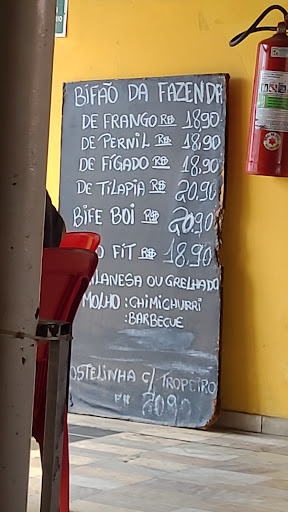 BIFÃO DA FAZENDA
DE FRANGO R$ 18,90
DE PERNIL R$ 18,90
DE FÍGADO R$ 18,90
DE TILAPIA R$ 20,90
BIFE BOI R$ 20,90
O FIT R$ 18,90
ILANESA OU GRELHADO
MOLHO : CHIMICHURRI
: BARBECUE
OSTELINHA C/ TROPEIRO
20,90